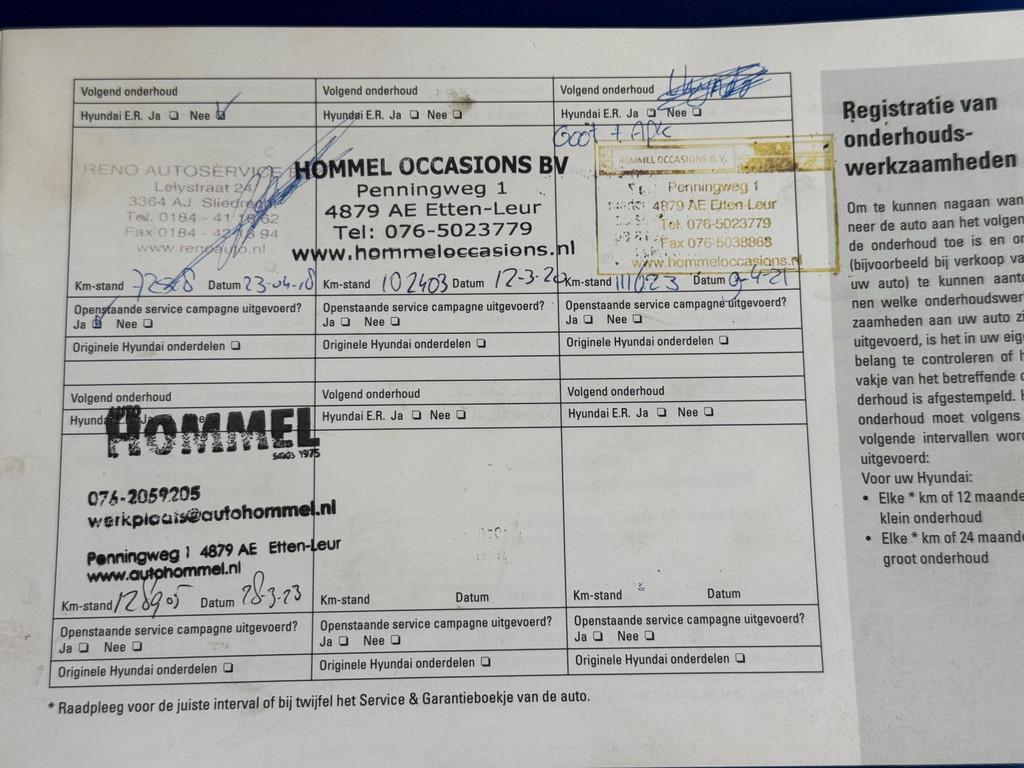 Volgend onderhoud
Hyundai E.R. Ja ❑ Nee ❑
RENO AUTOSERVICE
Lelystraat 24
3364 AJ Sliedrecht
Tel. 0184 - 41
Fax 0184 -
www.renoauto.nl
Km-stand Datum 23-04-18
Openstaande service campagne uitgevoerd?
Ja ❑ Nee ❑
Originele Hyundai onderdelen ❑
Volgend onderhoud
Hyundai E.R. Ja ❑ Nee ❑
HOMMEL OCCASIONS BV
Penningweg 1
4879 AE Etten-Leur
Tel: 076-5023779
www.hommeloccasions.nl
Km-stand 102403 Datum 12-3-20
Openstaande service campagne uitgevoerd?
Ja ❑ Nee ❑
Originele Hyundai onderdelen ❑
Volgend onderhoud
Hyundai E.R. Ja ❑ Nee ❑
Groot + Apk
HOMMEL OCCASIONS B.V.
Penningweg 1
4879 AE Etten-Leur
Tel: 076-5023779
Fax 076-5038868
www.hommeloccasions.nl
Km-stand 111623 Datum 9-4-21
Openstaande service campagne uitgevoerd?
Ja ❑ Nee ❑
Originele Hyundai onderdelen ❑
Volgend onderhoud
Hyundai E.R. Ja Nee
AUTO
HOMMEL
SINDS 1975
076-2059205
werkplaats@autohommel.nl
Penningweg 1 4879 AE Etten-Leur
www.autohommel.nl
Km-stand 128905 Datum 28-3-23
Openstaande service campagne uitgevoerd?
Ja ❑ Nee ❑
Originele Hyundai onderdelen ❑
Volgend onderhoud
Hyundai E.R. Ja ❑ Nee ❑
Km-stand Datum
Openstaande service campagne uitgevoerd?
Ja ❑ Nee ❑
Originele Hyundai onderdelen ❑
Volgend onderhoud
Hyundai E.R. Ja ❑ Nee ❑
Km-stand Datum
Openstaande service campagne uitgevoerd?
Ja ❑ Nee ❑
Originele Hyundai onderdelen ❑
* Raadpleeg voor de juiste interval of bij twijfel het Service & Garantieboekje van de auto.
Registratie van
onderhouds-
werkzaamheden
Om te kunnen nagaan wan
neer de auto aan het volgen
de onderhoud toe is en o
(bijvoorbeeld bij verkoop va
uw auto) te kunnen aant
nen welke onderhoudswer
zaamheden aan uw auto zi
uitgevoerd, is het in uw eig
belang te controleren of h
vakje van het betreffende o
derhoud is afgestempeld. H
onderhoud moet volgens
volgende intervallen word
uitgevoerd:
Voor uw Hyundai:
• Elke * km of 12 maande
klein onderhoud
• Elke * km of 24 maand
groot onderhoud